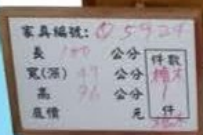 家具編號: 05924
長 180 公分
寬(深) 47 公分
高 96 公分
底價 元
件數
1
件